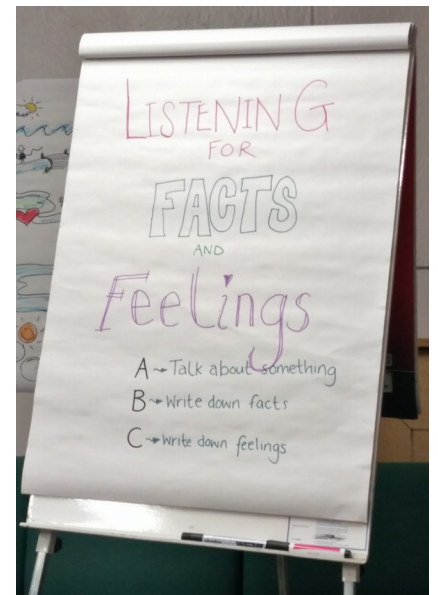 LISTENING
FOR
FACTS
AND
Feelings
A → Talk about something
B → Write down facts
C → Write down feelings